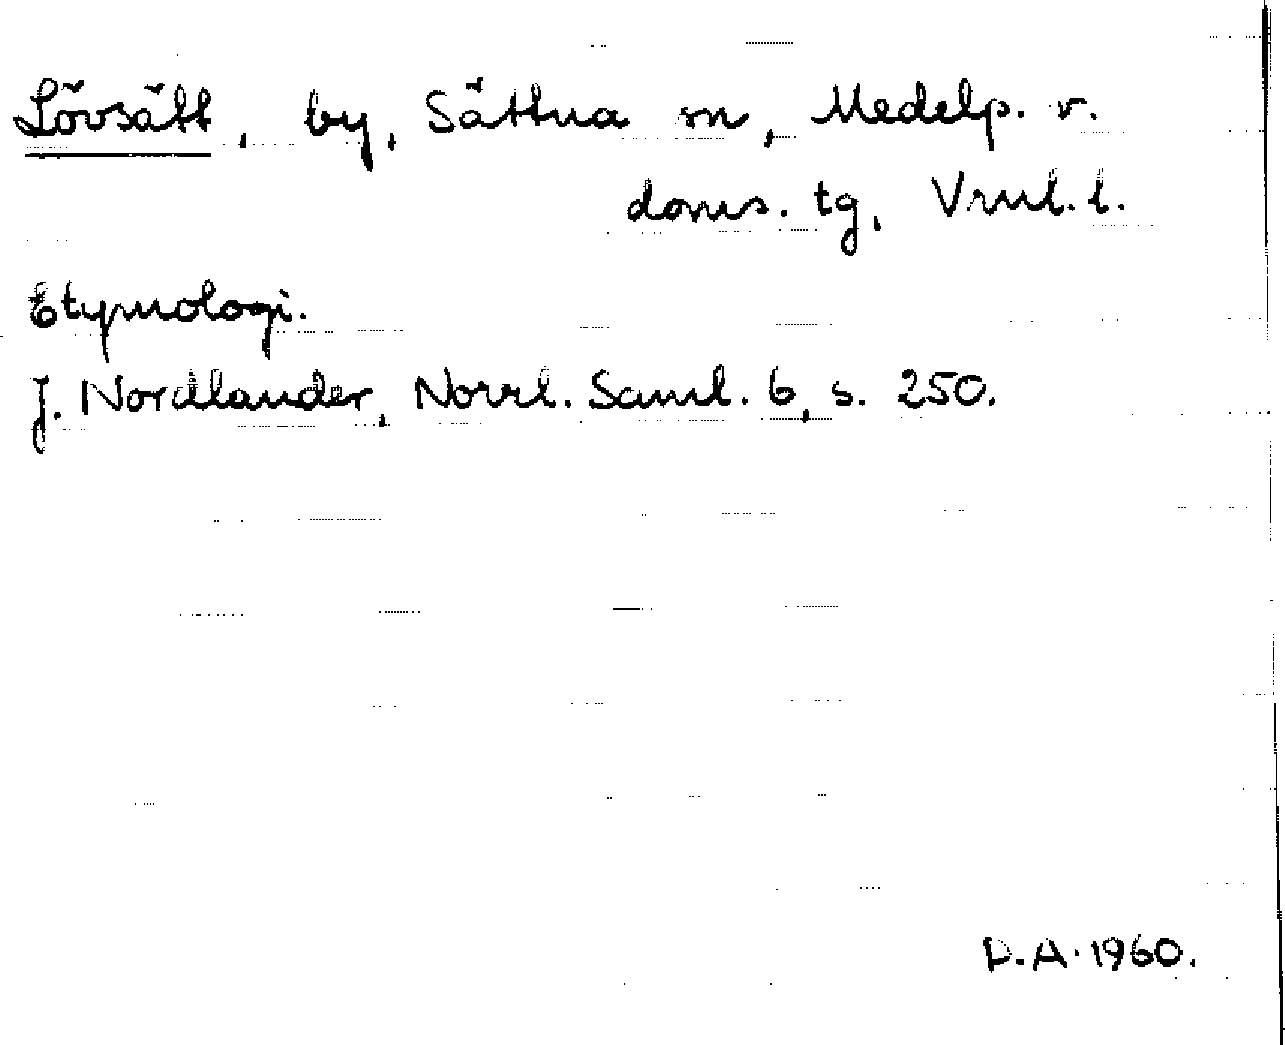 Lövsätt, by, Sättna sn, Medelp. v.
doms. tg, Vrnl. l.
Etymologi.
J. Nordlander, Norrl. Saml. 6, s. 250.
D.A. 1960.